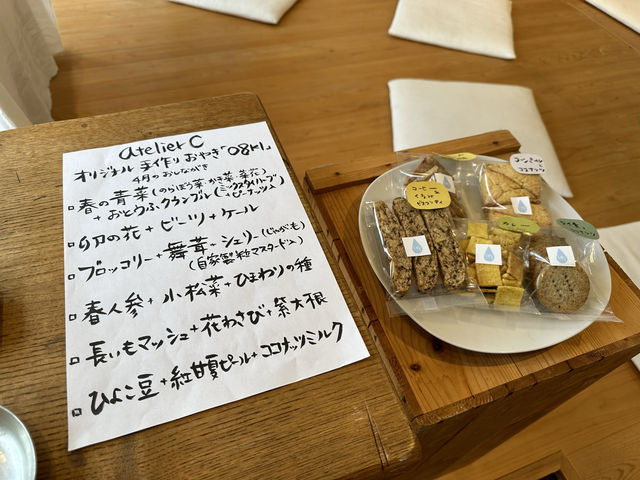 atelier C
オリジナル 手作り おやき「O8キ」
4月のおしながき
□ 春の青菜（のらぼう菜・かき菜・菜花）
+ おとうふクランブル（ミックスタイハーブ ピーナッツ入）
□ 卯の花 + ビーツ + ケール
□ ブロッコリー + 舞茸 + シェリー（じゃがいも）
（自家製粒マスタード入）
□ 春人参 + 小松菜 + ひまわりの種
□ 長いもマッシュ + 花わさび + 紫大根
□ ひよこ豆 + 紅甘夏ピール + ココナッツミルク
コーヒー&
くるみ
ビスコッティ
コーンミール
ココナッツ
カレー